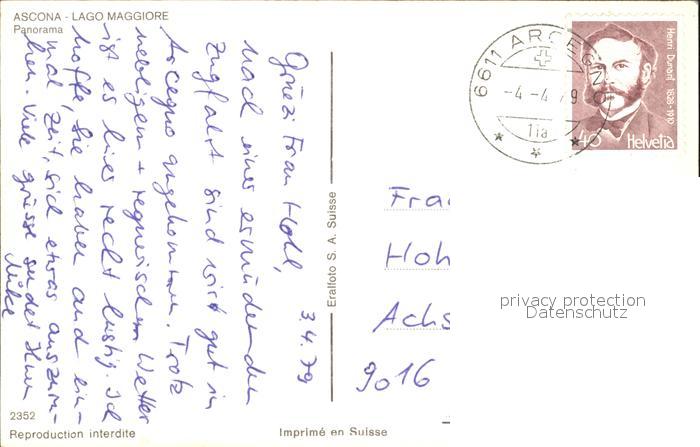 ASCONA - LAGO MAGGIORE
Panorama
3.4.79
Grüezi Frau Hohl,
nach einer ermüdenden
Zugfahrt sind wir gut in
Arcegno angekommen. Trotz
nebligem + regnerischem Wetter
ist es hier recht lustig. Ich
hoffe, Sie haben auch ein-
mal Zeit, sich etwas auszuru-
hen. Viele Grüsse sendet Ihnen
2352
Reproduction interdite
Imprimé en Suisse
Eralfoto S. A. Suisse
6611 ARCEGNO
-4-4 79
11a
Henri Dunant 1828-1910
40 Helvetia
Fra
Hoh
Achs
9016
privacy protection
Datenschutz